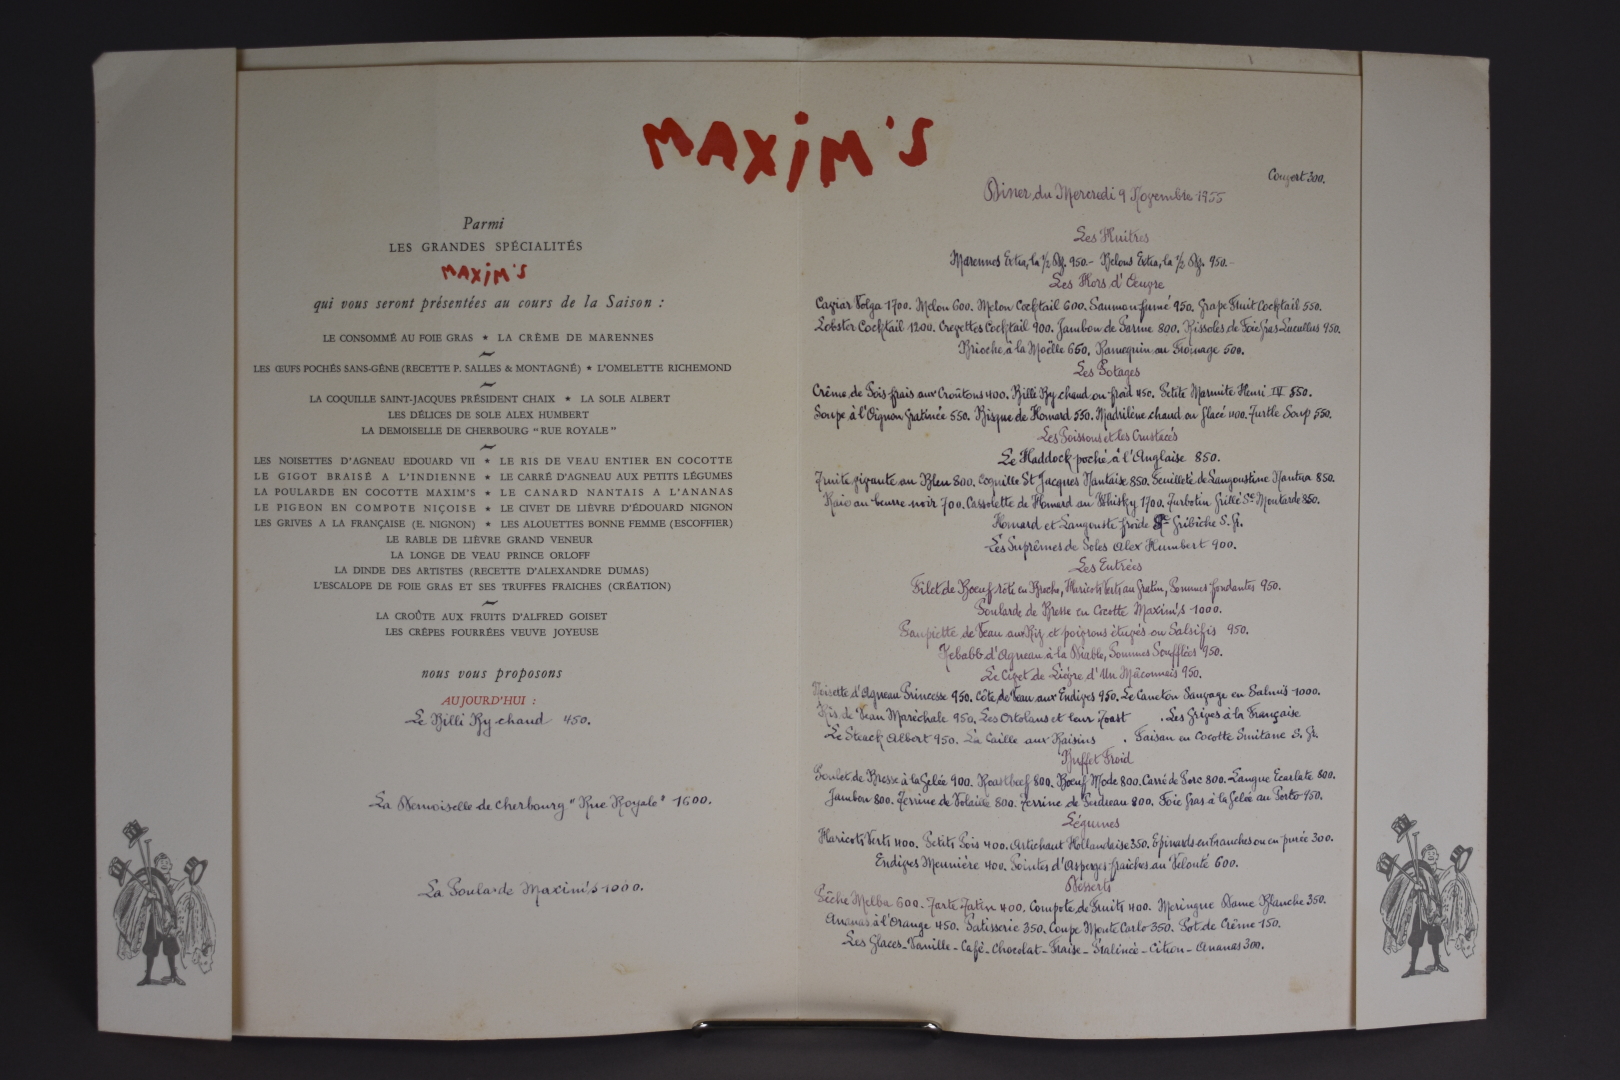 MAXIM'S
Parmi
LES GRANDES SPÉCIALITÉS
MAXIM'S
qui vous seront présentées au cours de la Saison :
LE CONSOMMÉ AU FOIE GRAS ★ LA CRÈME DE MARENNES
LES ŒUFS POCHÉS SANS-GÊNE (RECETTE P. SALLES & MONTAGNÉ) ★ L'OMELETTE RICHEMOND
LA COQUILLE SAINT-JACQUES PRÉSIDENT CHAIX ★ LA SOLE ALBERT
LES DÉLICES DE SOLE ALEX HUMBERT
LA DEMOISELLE DE CHERBOURG "RUE ROYALE"
LES NOISETTES D'AGNEAU EDOUARD VII ★ LE RIS DE VEAU ENTIER EN COCOTTE
LE GIGOT BRAISÉ A L'INDIENNE ★ LE CARRÉ D'AGNEAU AUX PETITS LÉGUMES
LA POULARDE EN COCOTTE MAXIM'S ★ LE CANARD NANTAIS A L'ANANAS
LE PIGEON EN COMPOTE NIÇOISE ★ LE CIVET DE LIÈVRE D'ÉDOUARD NIGNON
LES GRIVES A LA FRANÇAISE (E. NIGNON) ★ LES ALOUETTES BONNE FEMME (ESCOFFIER)
LE RABLE DE LIÈVRE GRAND VENEUR
LA LONGE DE VEAU PRINCE ORLOFF
LA DINDE DES ARTISTES (RECETTE D'ALEXANDRE DUMAS)
L'ESCALOPE DE FOIE GRAS ET SES TRUFFES FRAICHES (CRÉATION)
LA CROÛTE AUX FRUITS D'ALFRED GOISET
LES CRÊPES FOURRÉES VEUVE JOYEUSE
nous vous proposons
AUJOURD'HUI :
Le Billi By chaud 450.
La Demoiselle de Cherbourg "Rue Royale" 1600.
La Poularde Maxim's 1000.
Couvert 300.
Dîner du Mercredi 9 Novembre 1955
Les Huîtres
Marennes Extra, la 1/2 Dz. 950.- Belons Extra, la 1/2 Dz. 950.-
Les Hors d'Œuvre
Caviar Volga 1700. Melon 600. Melon Cocktail 600. Saumon fumé 950. Grape Fruit Cocktail 550.
Lobster Cocktail 1200. Crevettes Cocktail 900. Jambon de Parme 800. Rissoles de Foie Gras Lucullus 950.
Brioche à la Moëlle 650. Ramequin au Fromage 500.
Les Potages
Crème de Pois frais aux Croûtons 400. Billi By chaud ou froid 450. Petite Marmite Henri IV 550.
Soupe à l'Oignon Gratinée 550. Bisque de Homard 550. Madrilène chaud ou glacé 400. Turtle Soup 550.
Les Poissons et les Crustacés
Le Haddock poché à l'Anglaise 850.
Truite vivante au Bleu 800. Coquille St Jacques Nantaise 850. Feuilleté de Langoustine Nantua 850.
Raie au beurre noir 700. Cassolette de Homard au Whisky 1700. Turbotin Grillé Sce Moutarde 850.
Homard et Langouste froide Sce Gribiche S. G.
Les Suprêmes de Soles Alex Humbert 900.
Les Entrées
Filet de Bœuf rôti en Broche, Haricots Verts au Gratin, Pommes fondantes 950.
Poularde de Bresse en Cocotte Maxim's 1000.
Paupiette de Veau aux Riz et poivrons étuvés ou Salsifis 950.
Kebabb d'Agneau à la Diable, Pommes Soufflées 950.
Le Civet de Lièvre d'Un Mâconnais 950.
Noisette d'Agneau Princesse 950. Côte de Veau aux Endives 950. Le Caneton Sauvage en Salmis 1000.
Ris de Veau Maréchale 950. Les Ortolans et leur Toast . Les Grives à la Française
Le Steack Albert 950. La Caille aux Raisins . Faisan en Cocotte Smitane S. G.
Buffet Froid
Poulet de Bresse à la Gelée 900. Roastbeef 800. Bœuf Mode 800. Carré de Porc 800. Langue Ecarlate 800.
Jambon 800. Terrine de Volaille 800. Terrine de Perdreau 800. Foie Gras à la Gelée au Porto 950.
Légumes
Haricots Verts 400. Petits Pois 400. Artichaut Hollandaise 350. Epinards en branches ou en purée 300.
Endives Meunière 400. Pointes d'Asperges fraîches au Velouté 600.
Desserts
Pêche Melba 600. Tarte Tatin 400. Compote de Fruits 400. Meringue Dame Blanche 350.
Ananas à l'Orange 450. Patisserie 350. Coupe Monte Carlo 350. Pot de Crème 150.
Les Glaces - Vanille - Café - Chocolat - Fraise - Pralinée - Citron - Ananas 300.